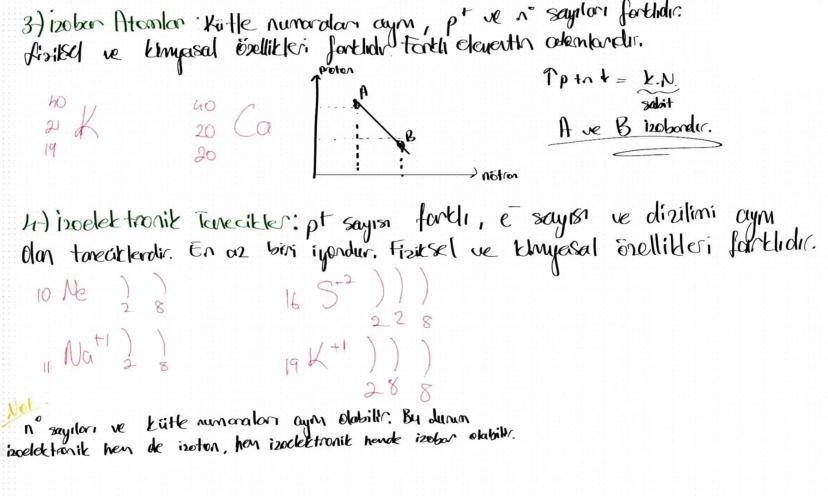 3-) izobar Atomlar: Kütle numaraları aynı, p+ ve n° sayıları farklıdır.
fiziksel ve kimyasal özellikleri farklıdır Farklı elementin atomlarıdır.
40
21 K
19
40
20 Ca
20
proton
A
B
nötron
↑p + n ↓ = k.N
sabit
A ve B izobardır.
4-) izoelektronik Tanecikler: p+ sayısı farklı, e- sayısı ve dizilimi aynı
olan taneciklerdir. En az biri iyondur. Fiziksel ve kimyasal özellikleri farklıdır.
10 Ne ) )
2 8
16 S-2 ) ) )
2 2 8
11 Na+1 ) )
2 8
19 K+1 ) ) )
2 8 8
Not
n° sayıları ve kütle numaraları aynı olabilir. Bu durum
izoelektronik hem de izoton, hem izoelektronik hemde izobar olabilir.